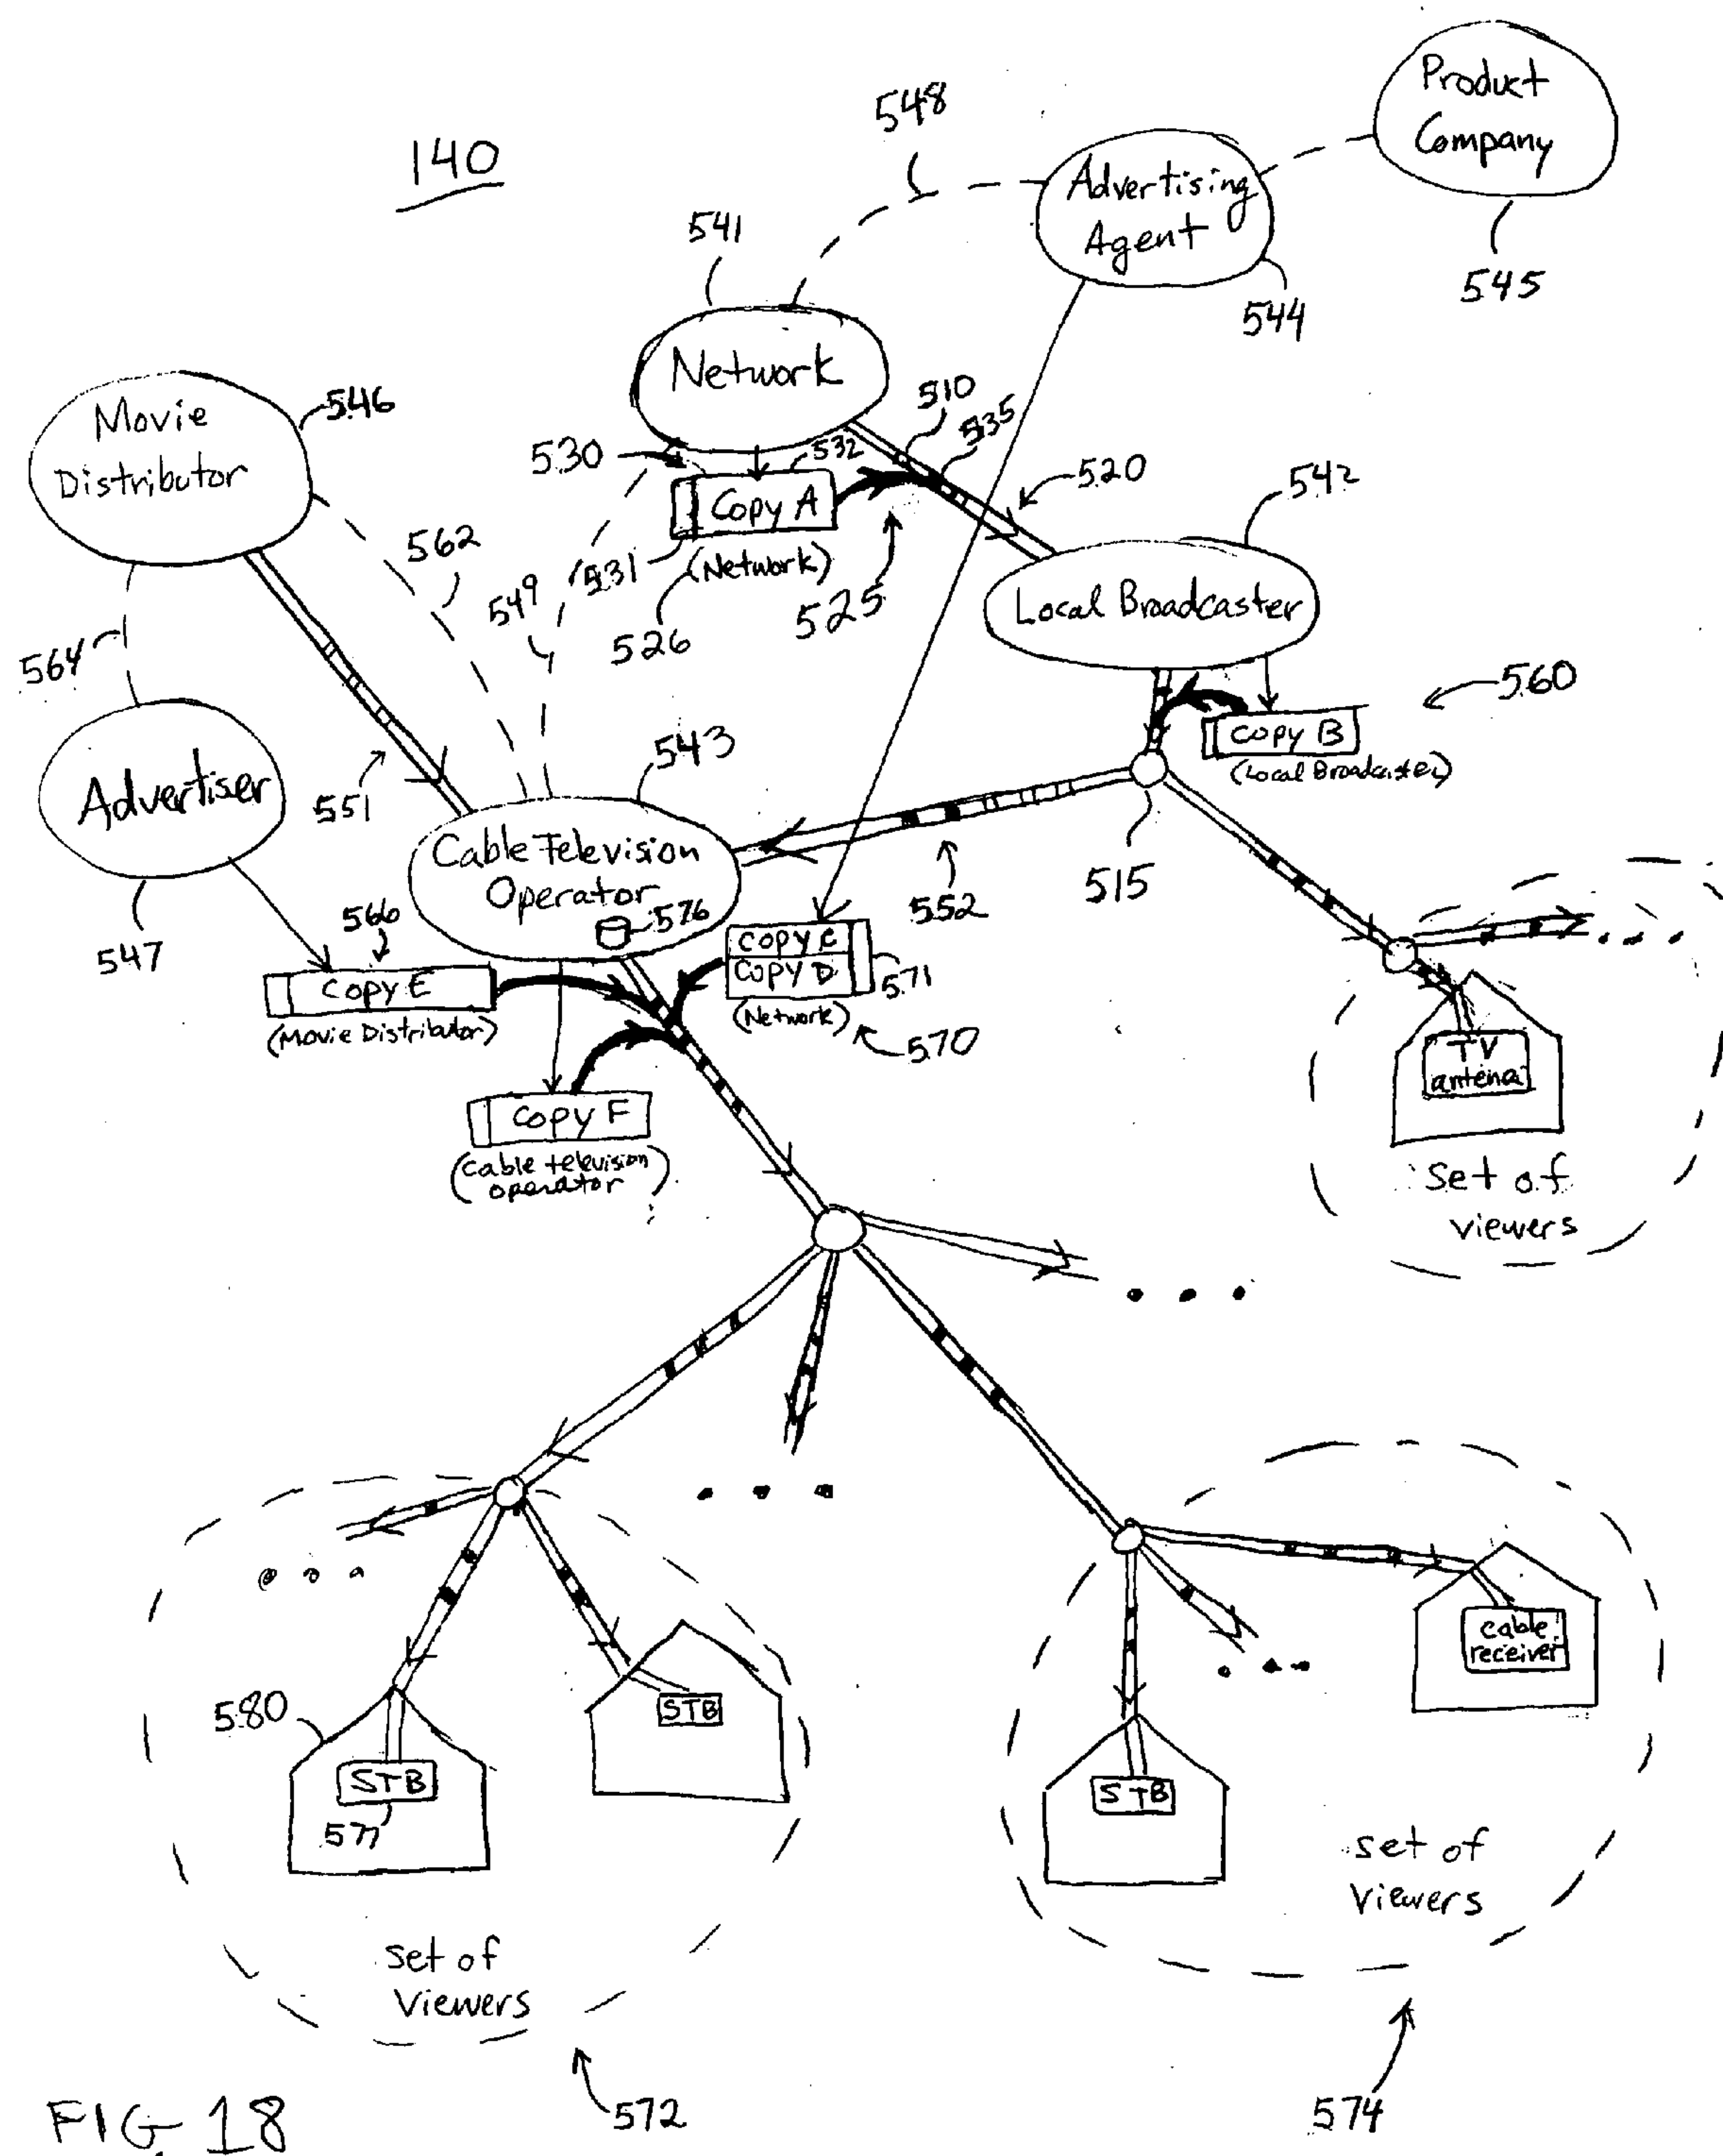 140
548
Product
Company
545
Advertising
Agent
544
541
Network
510
535
520
542
Movie
Distributor
546
530
532
Copy A
531
(Network)
526
525
562
549
564
Local Broadcaster
560
Copy B
(Local Broadcaster)
543
551
Advertiser
547
Cable Television
Operator
576
552
515
566
Copy E
(Movie Distributor)
Copy C
Copy D
571
(Network)
570
Copy F
(Cable television
operator)
TV
antena
set of
viewers
580
STB
577
STB
STB
cable
receiver
set of
viewers
set of
viewers
572
574
FIG. 18